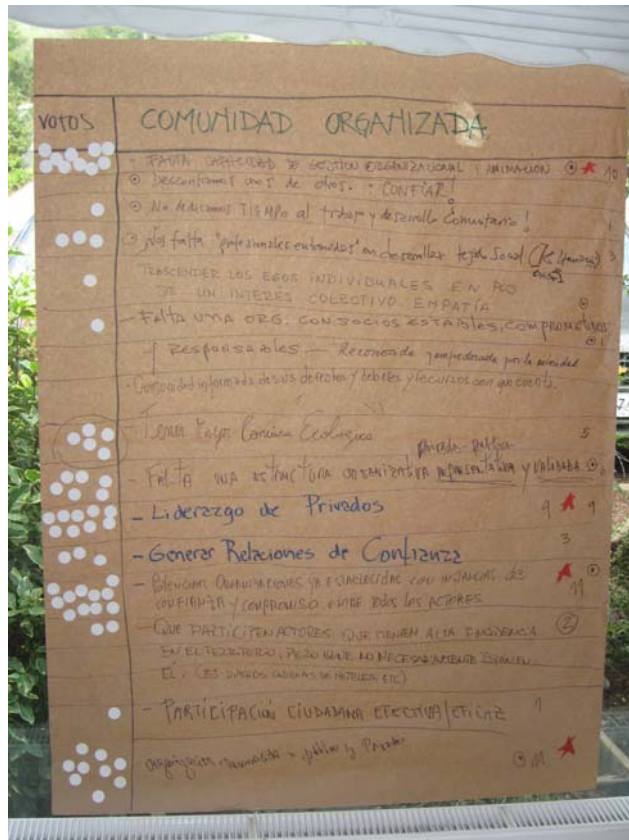 VOTOS COMUNIDAD ORGANIZADA
- FALTA CAPACIDAD DE GESTION ORGANIZACIONAL Y ANIMACION 10
Desconfiamos unos de otros. CONFIAR!
No dedicamos TIEMPO al trabajo y desarrollo Comunitario! 1
Nos falta "profesionales entrenados" en desarrollar tejido Social 3
TRASCENDER LOS EGOS INDIVIDUALES EN POS
DE UN INTERES COLECTIVO. EMPATÍA
- FALTA UNA ORG. CON SOCIOS ESTABLES, COMPROMETIDOS
Y RESPONSABLES. - Reconocida y empoderada por la 1
- Comunidad informada de sus y deberes y recursos con que cuenta.
Tener Ecologica 5
privada-publica
- FALTA UNA ESTRUCTURA ORGANIZATIVA REPRESENTATIVA y VALIDADA
- Liderazgo de Privados 9 9
- Generar Relaciones de Confianza 3
- POTENCIAR ORGANIZACIONES YA ESTABLECIDAS CON INSTANCIAS DE 11
CONFIANZA Y COMPROMISO ENTRE TODOS LOS ACTORES
- QUE PARTICIPEN ACTORES QUE TIENEN ALTA INCIDENCIA 2
EN EL TERRITORIO, PERO QUE NO NECESARIAMENTE ESTAN EN
ÉL. (EJ. CADENAS DE HOTELES, ETC)
- PARTICIPACIÓN CIUDADANA EFECTIVA/EFICAZ 1
organización publica y Privada 11